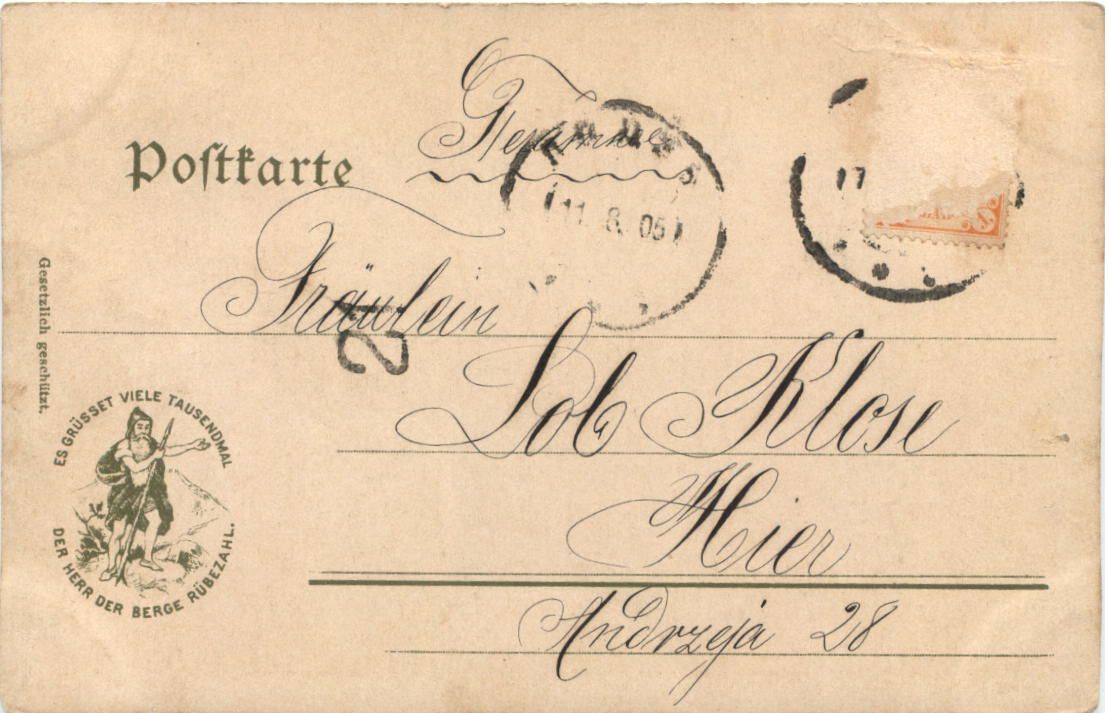 Postkarte
11. 8. 05
17
Fräulein
2
Lob Klose
Hier
Andrzeja 28
Gesetzlich geschützt.
ES GRÜSSET VIELE TAUSENDMAL
DER HERR DER BERGE RÜBEZAHL.